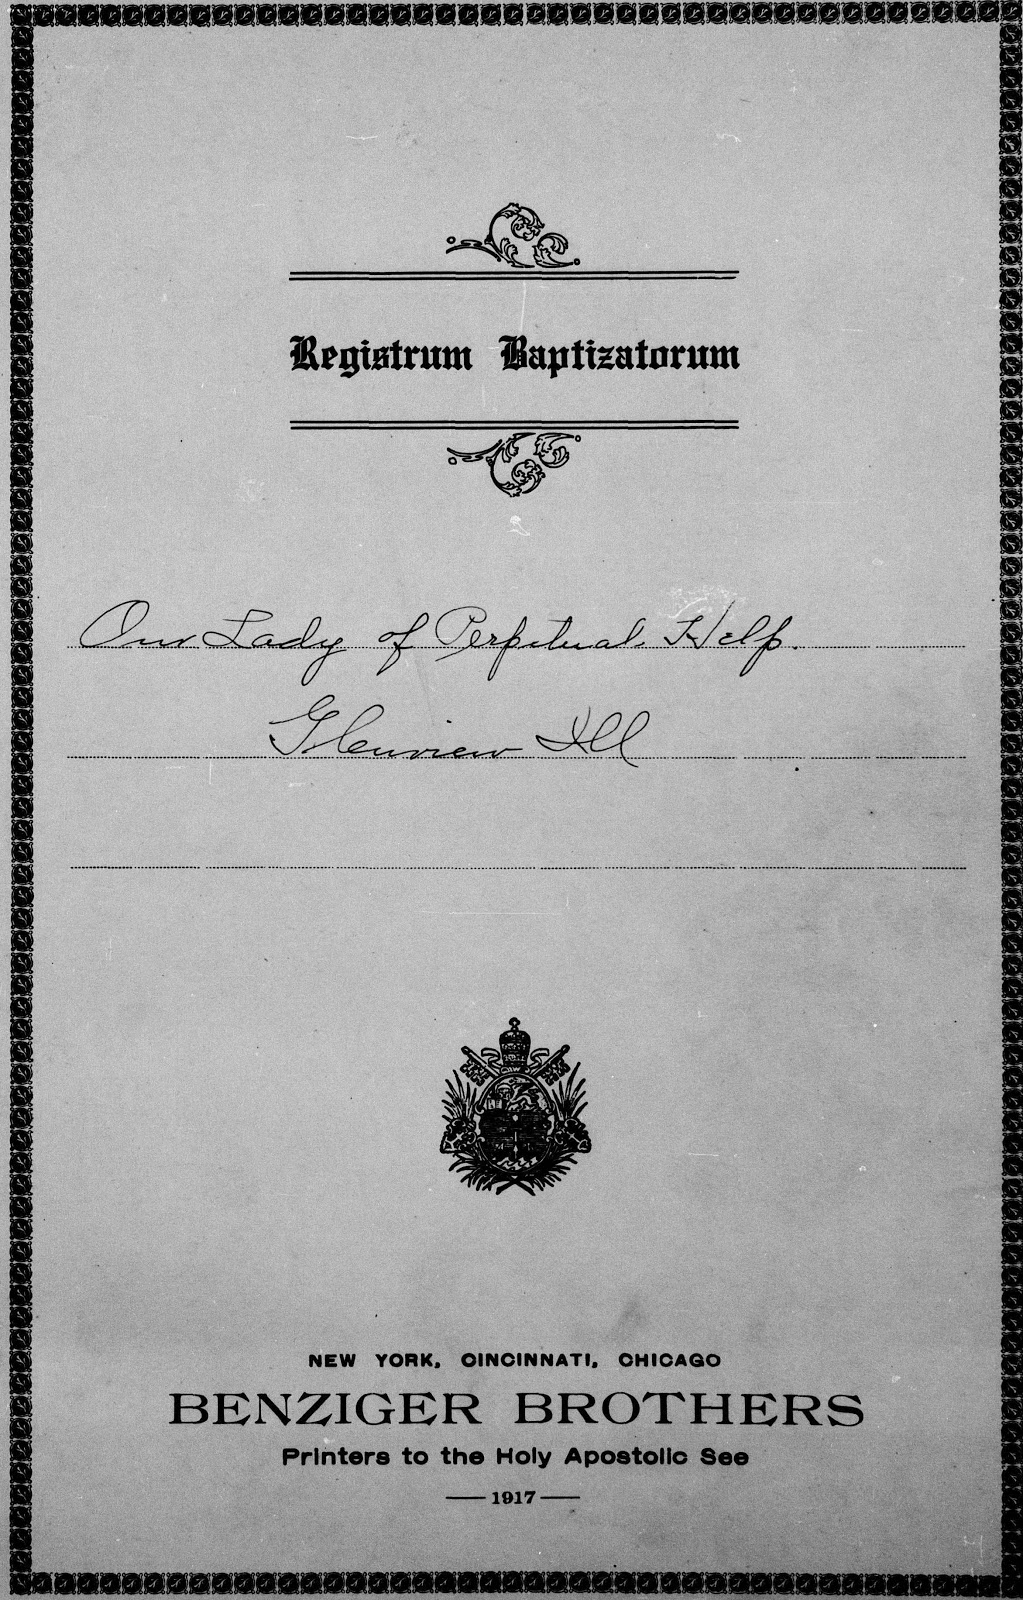 Registrum Baptizatorum
Our Lady of Perpetual Help.
Glenview Ill
NEW YORK, CINCINNATI, CHICAGO
BENZIGER BROTHERS
Printers to the Holy Apostolic See
1917